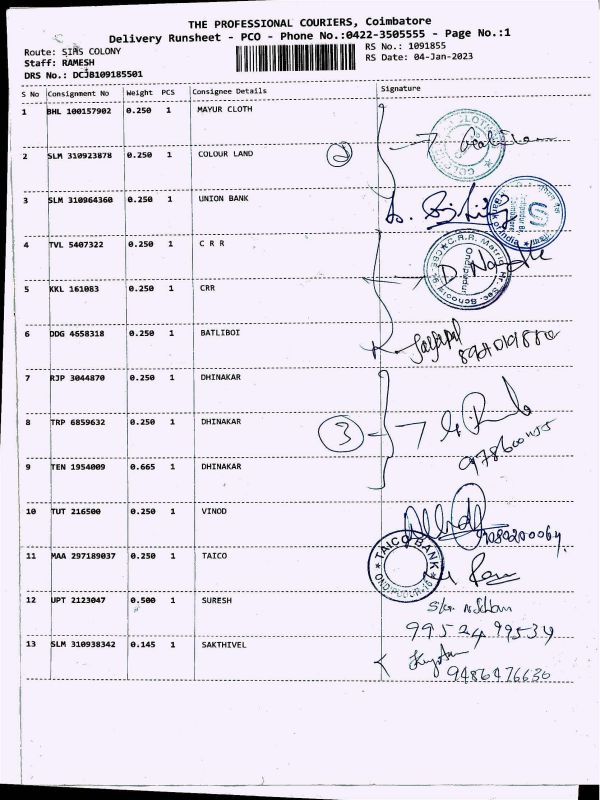 THE PROFESSIONAL COURIERS, Coimbatore
Delivery Runsheet - PCO - Phone No.:0422-3505555 - Page No.:1
Route: SIMS COLONY
RS No.: 1091855
Staff: RAMESH
RS Date: 04-Jan-2023
DRS No.: DCJB109185501
S No Consignment No Weight PCS Consignee Details Signature
1 BHL 100157902 0.250 1 MAYUR CLOTH
2 SLM 310923878 0.250 1 COLOUR LAND 2
3 SLM 310964360 0.250 1 UNION BANK
Bank of India
4 TVL 5407322 0.250 1 C R R
C.R.R. Matric. Hr. Sec. School
5 KKL 161083 0.250 1 CRR
6 DDG 4658318 0.250 1 BATLIBOI
7 RJP 3044870 0.250 1 DHINAKAR
8 TRP 6859632 0.250 1 DHINAKAR 3
9 TEN 1954009 0.665 1 DHINAKAR
10 TUT 216500 0.250 1 VINOD
11 MAA 297189037 0.250 1 TAICO
TAICO BANK
12 UPT 2123047 0.500 1 SURESH
99524 99534
13 SLM 310938342 0.145 1 SAKTHIVEL
9486476630